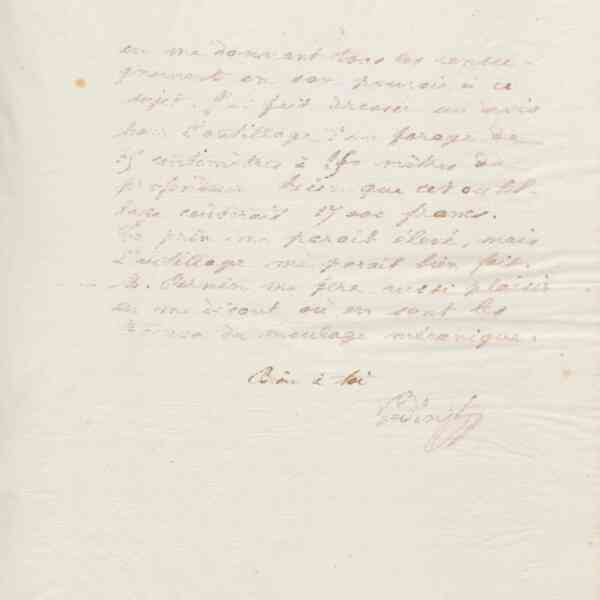 en me donnant tous les rensei-
gnement en son pouvoir à ce
sujet. J'ai fait dresser un devis
pour l'outillage d'un forage de
centimètres à 150 mètres de
profondeur que cet outil-
lage coûterait 17 000 francs.
Le prix me parait élevé, mais
l'outillage me parait bien fait.
M. me fera aussi plaisir
en me disant où en sont les
du moulage mécanique.
Bien à toi
Godin